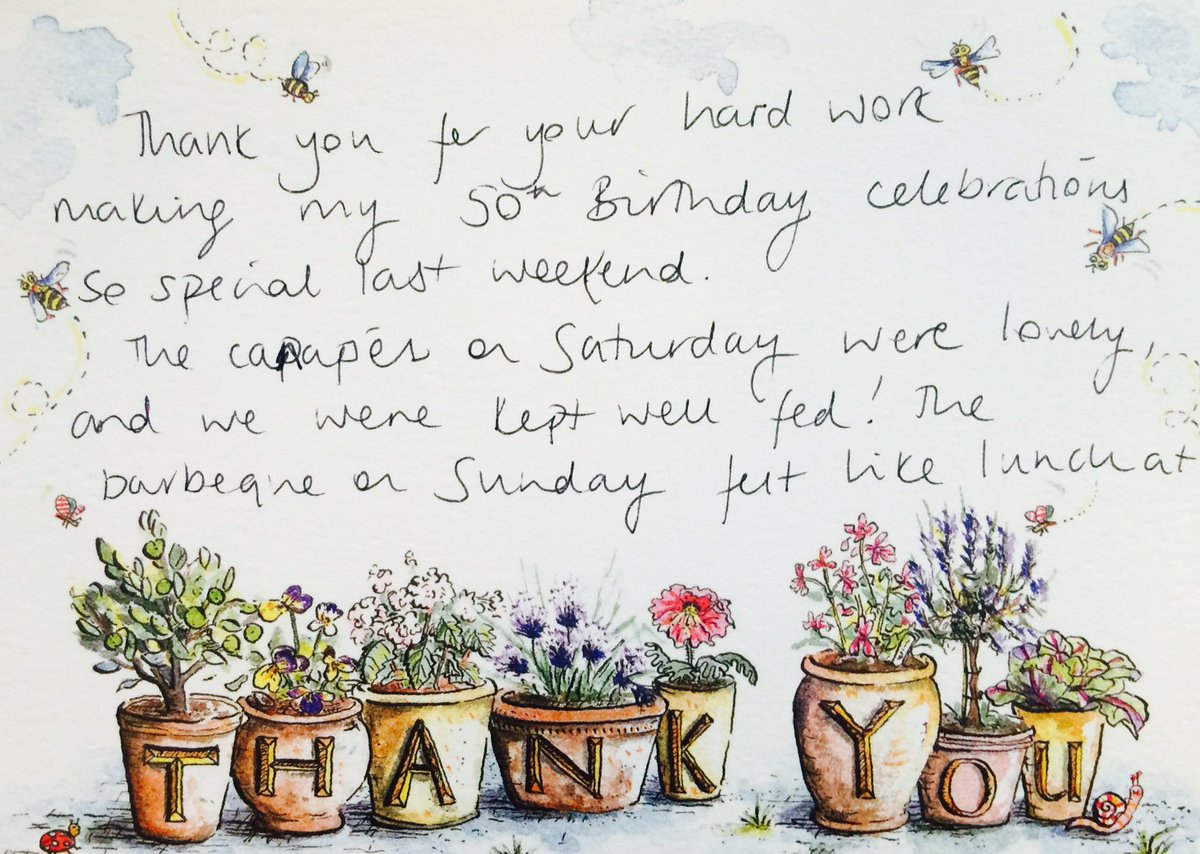 Thank you for your hard work
making my 50th Birthday celebrations
so special last weekend.
The canapés on Saturday were lovely,
and we were kept well fed! The
barbeque on Sunday felt like lunch at
THANK YOU